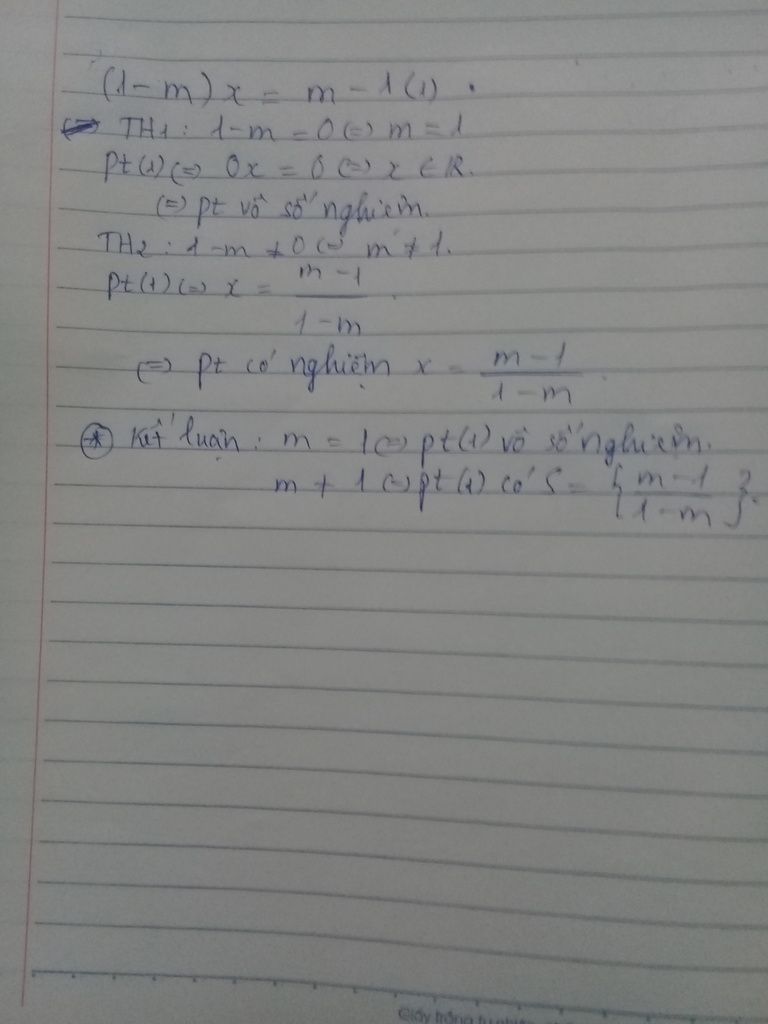 (1-m)x = m-1 (1).
TH1: 1-m = 0 (=) m = 1
Pt(1) (=) 0x = 0 (=) x ∈ R.
(=) pt vô số nghiệm.
TH2: 1-m ≠ 0 (=) m ≠ 1.
Pt(1) (=) x = \frac{m-1}{1-m}.
(=) pt có nghiệm x = \frac{m-1}{1-m}.
* Kết luận: m = 1 (=) pt(1) vô số nghiệm.
m ≠ 1 (=) pt(1) có S = {\frac{m-1}{1-m}}.